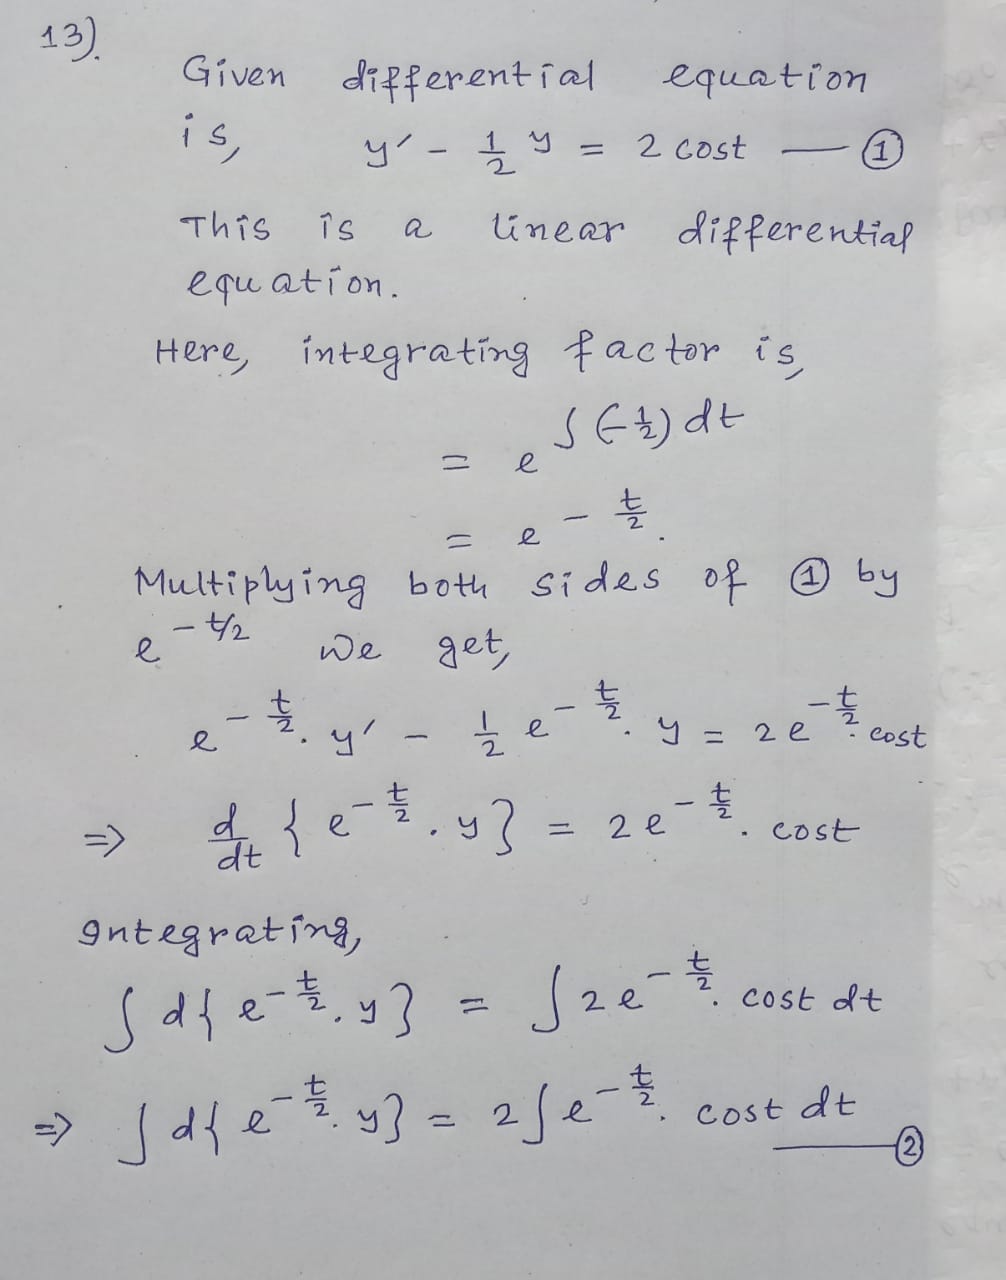 13).
Given differential equation
is,
y′ - 1/2 y = 2 cost — ①
This is a linear differential
equation.
Here, integrating factor is,
= e^∫(-1/2) dt
= e^-t/2.
Multiplying both sides of ① by
e^-t/2 we get,
e^-t/2. y′ - 1/2 e^-t/2. y = 2e^-t/2. cost
⇒ d/dt {e^-t/2. y} = 2e^-t/2. cost
Integrating,
∫d{e^-t/2. y} = ∫2e^-t/2. cost dt
⇒ ∫d{e^-t/2. y} = 2∫e^-t/2. cost dt
— ②